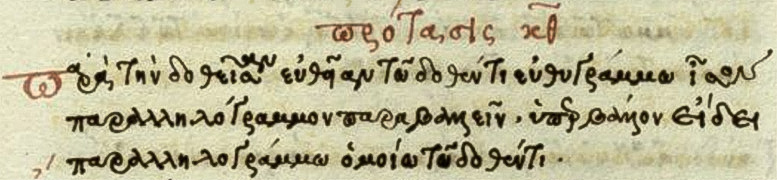 πρότασις κθ
Παρὰ τὴν δοθεῖσαν εὐθεῖαν τῶ δοθέντι εὐθυγράμμω ἴσον
παραλληλόγραμμον παραβαλεῖν, ὑπερβάλλον εἴδει
παραλληλογράμμω ὁμοίω τῶ δοθέντι.